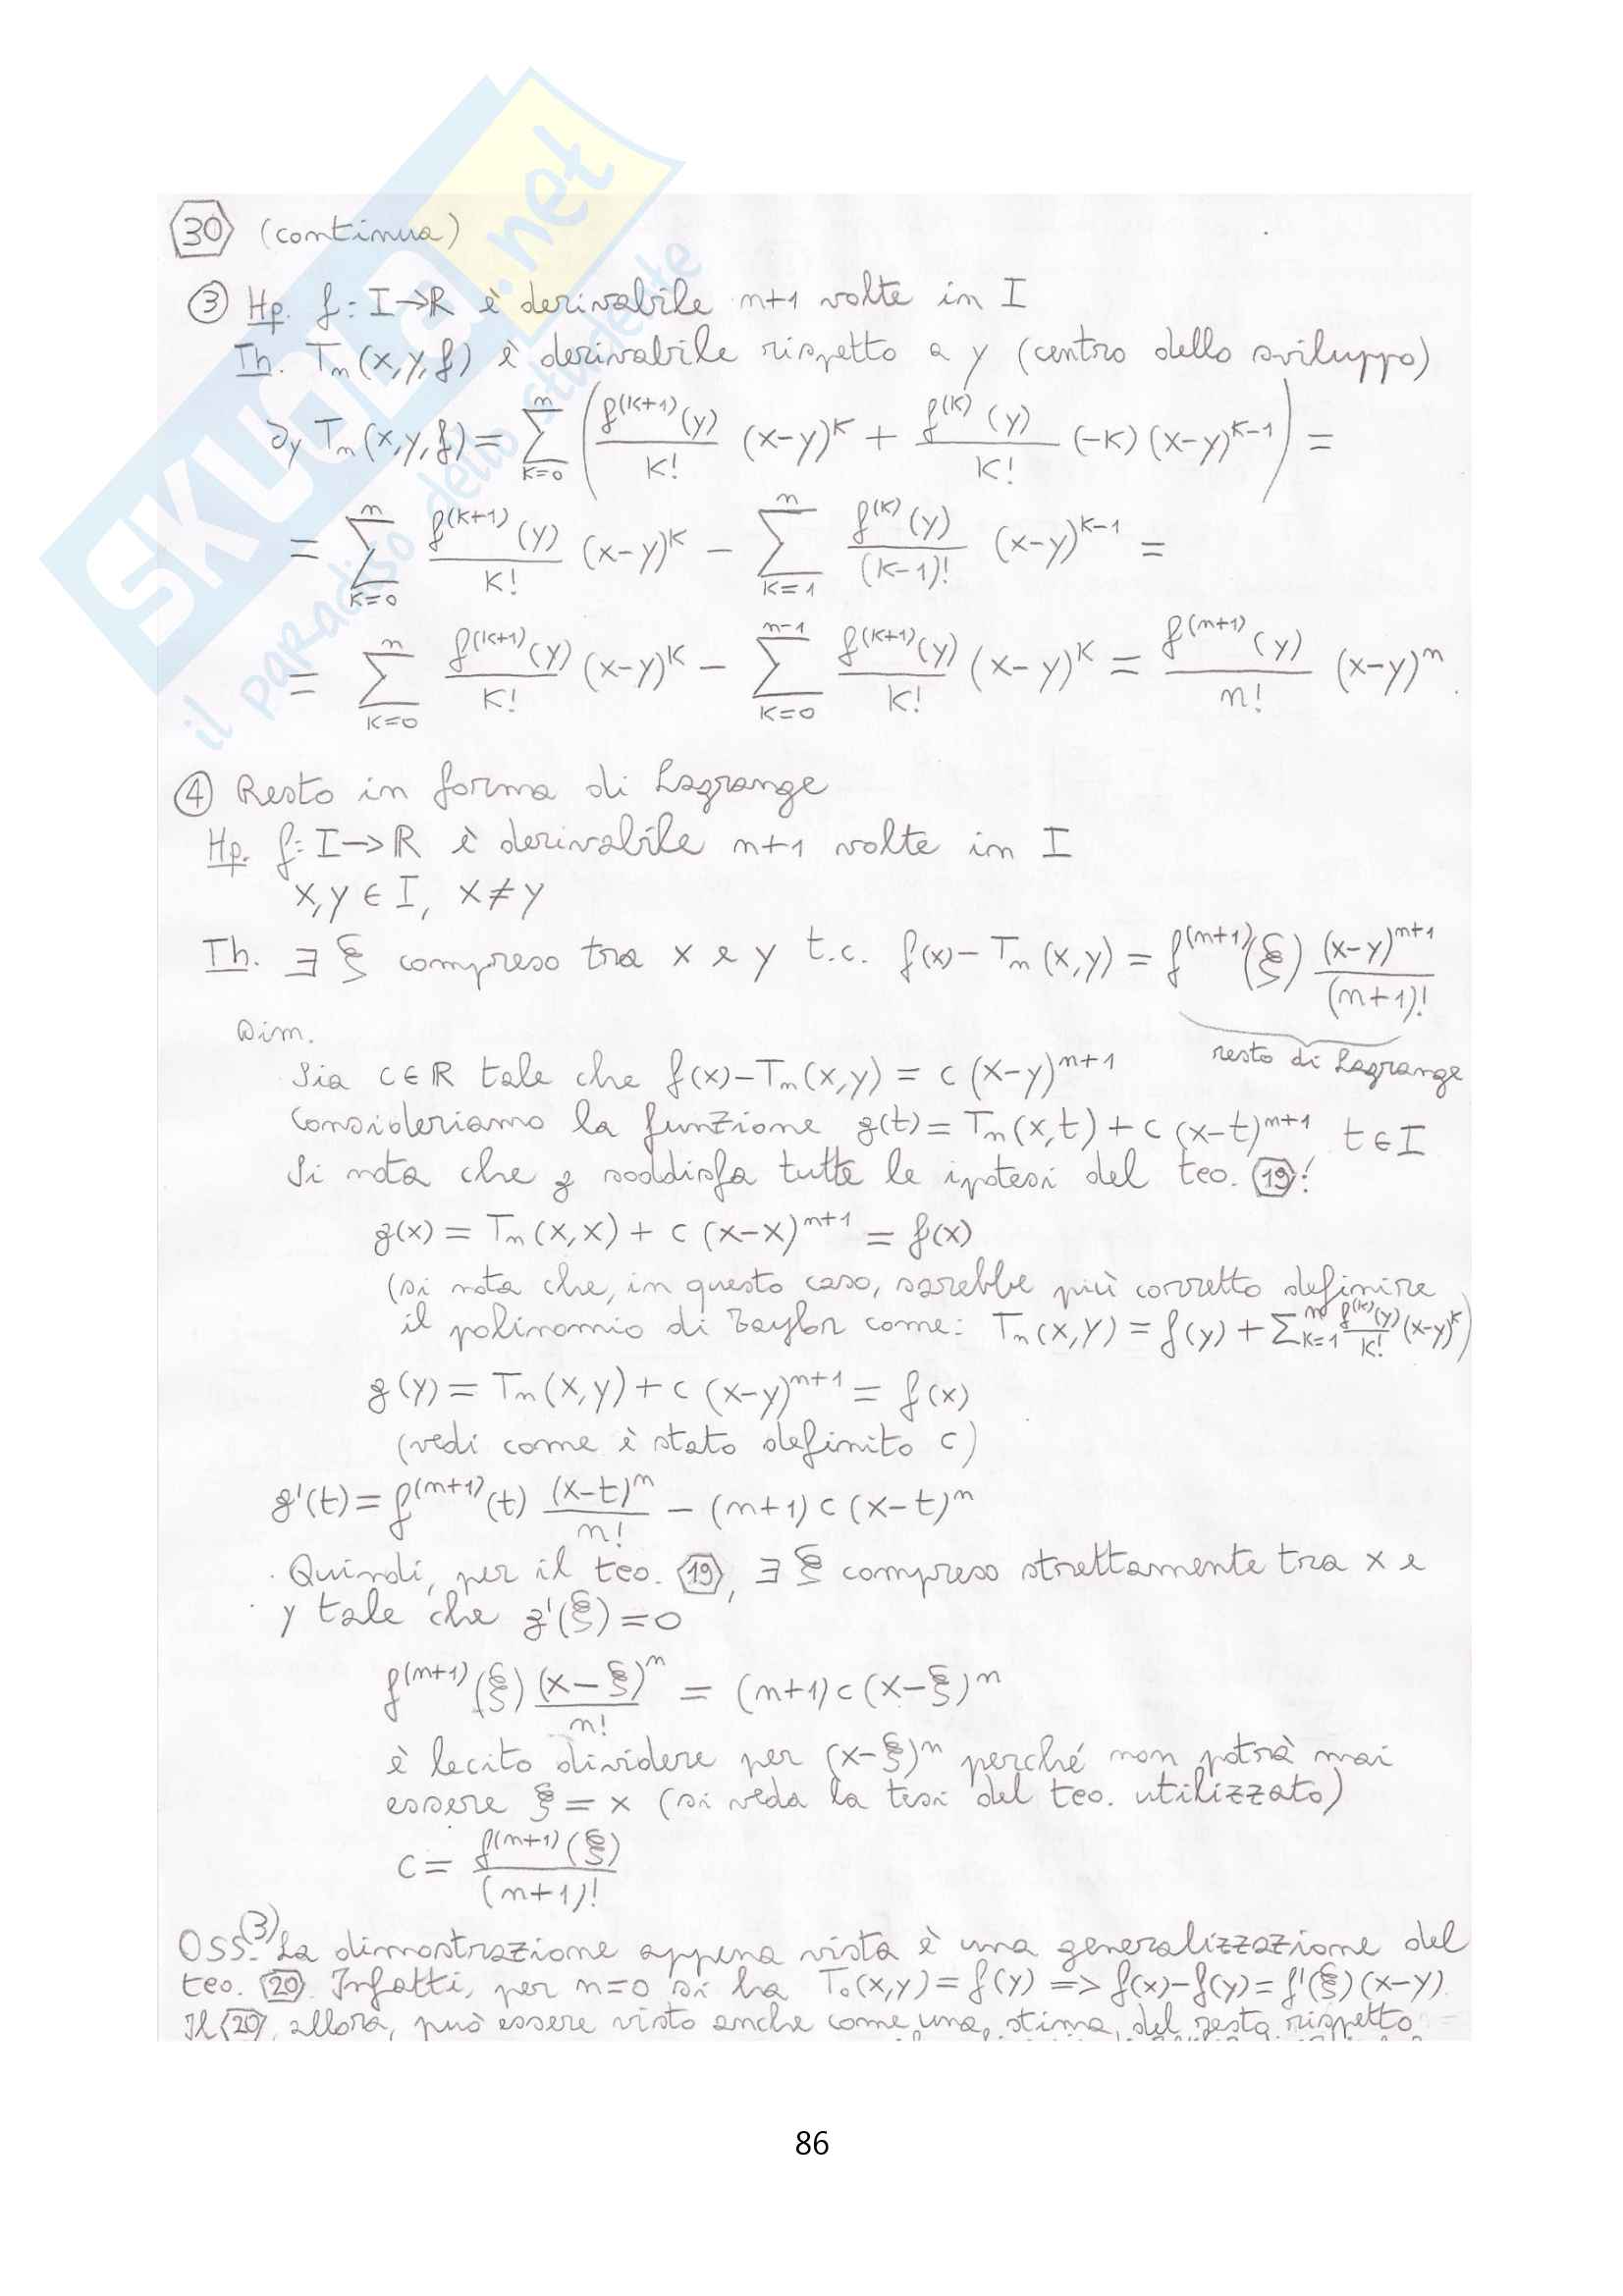 SKUOLA.net
il paradiso dello studente
30 (continua)
③ Hp. f: I→ℝ è derivabile n+1 volte in I
Th. Tₙ(x,y,f) è derivabile rispetto a y (centro dello sviluppo)
∂y Tₙ(x,y,f) = ∑_{k=0}^{n} ( f^(k+1)(y)/k! (x-y)^k + f^(k)(y)/k! (-k)(x-y)^{k-1} ) =
= ∑_{k=0}^{n} f^(k+1)(y)/k! (x-y)^k - ∑_{k=1}^{n} f^(k)(y)/(k-1)! (x-y)^{k-1} =
= ∑_{k=0}^{n} f^(k+1)(y)/k! (x-y)^k - ∑_{k=0}^{n-1} f^(k+1)(y)/k! (x-y)^k = f^(n+1)(y)/n! (x-y)^n.
④ Resto in forma di Lagrange
Hp. f: I→ℝ è derivabile n+1 volte in I
x,y ∈ I, x≠y
Th. ∃ ξ compreso tra x e y t.c. f(x) - Tₙ(x,y) = f^(n+1)(ξ) (x-y)^{n+1}/(n+1)!
resto di Lagrange
Dim.
Sia c∈ℝ tale che f(x)-Tₙ(x,y) = c (x-y)^{n+1}
Consideriamo la funzione g(t) = Tₙ(x,t) + c (x-t)^{n+1} t∈I
Si nota che g soddisfa tutte le ipotesi del teo. 19!
g(x) = Tₙ(x,x) + c (x-x)^{n+1} = f(x)
(si nota che, in questo caso, sarebbe più corretto definire
il polinomio di Taylor come: Tₙ(x,y) = f(y) + ∑_{k=1}^{n} f^(k)(y)/k! (x-y)^k)
g(y) = Tₙ(x,y) + c (x-y)^{n+1} = f(x)
(vedi come è stato definito c)
g'(t) = f^(n+1)(t) (x-t)^n/n! - (n+1) c (x-t)^n
Quindi, per il teo. 19, ∃ ξ compreso strettamente tra x e
y tale che g'(ξ) = 0
f^(n+1)(ξ) (x-ξ)^n/n! = (n+1) c (x-ξ)^n
è lecito dividere per (x-ξ)^n perché non potrà mai
essere ξ = x (si veda la tesi del teo. utilizzato)
c = f^(n+1)(ξ)/(n+1)!
OSS.(3) La dimostrazione appena vista è una generalizzazione del
teo. 20. Infatti, per n=0 si ha T₀(x,y) = f(y) => f(x)-f(y) = f'(ξ)(x-y).
Il 20, allora, può essere visto anche come una stima del resto rispetto
86